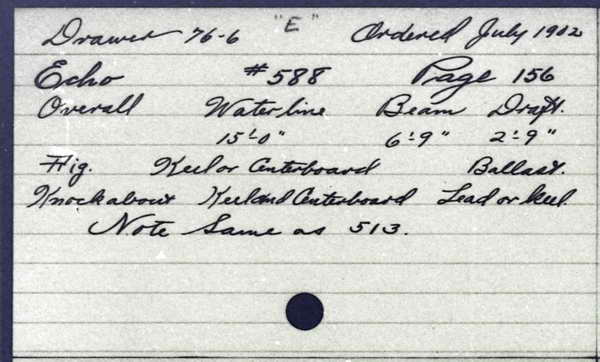 Drawer 76-6 "E" Ordered July 1902
Echo #588 Page 156
Overall Waterline Beam Draft.
15'-0" 6'-9" 2'-9"
Rig. Keel or Centerboard Ballast.
Knockabout Keel and Centerboard Lead or keel.
Note Same as 513.